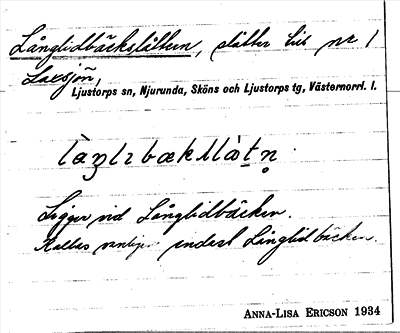 Långlidbäckslåtten, slåtter till nr 1
Laxsjön,
Ljustorps sn, Njurunda, Sköns och Ljustorps tg, Västernorrl. l.
Ligger vid Långlidbäcken.
Kallas vanligen endast Långlidbäcken.
ANNA-LISA ERICSON 1934